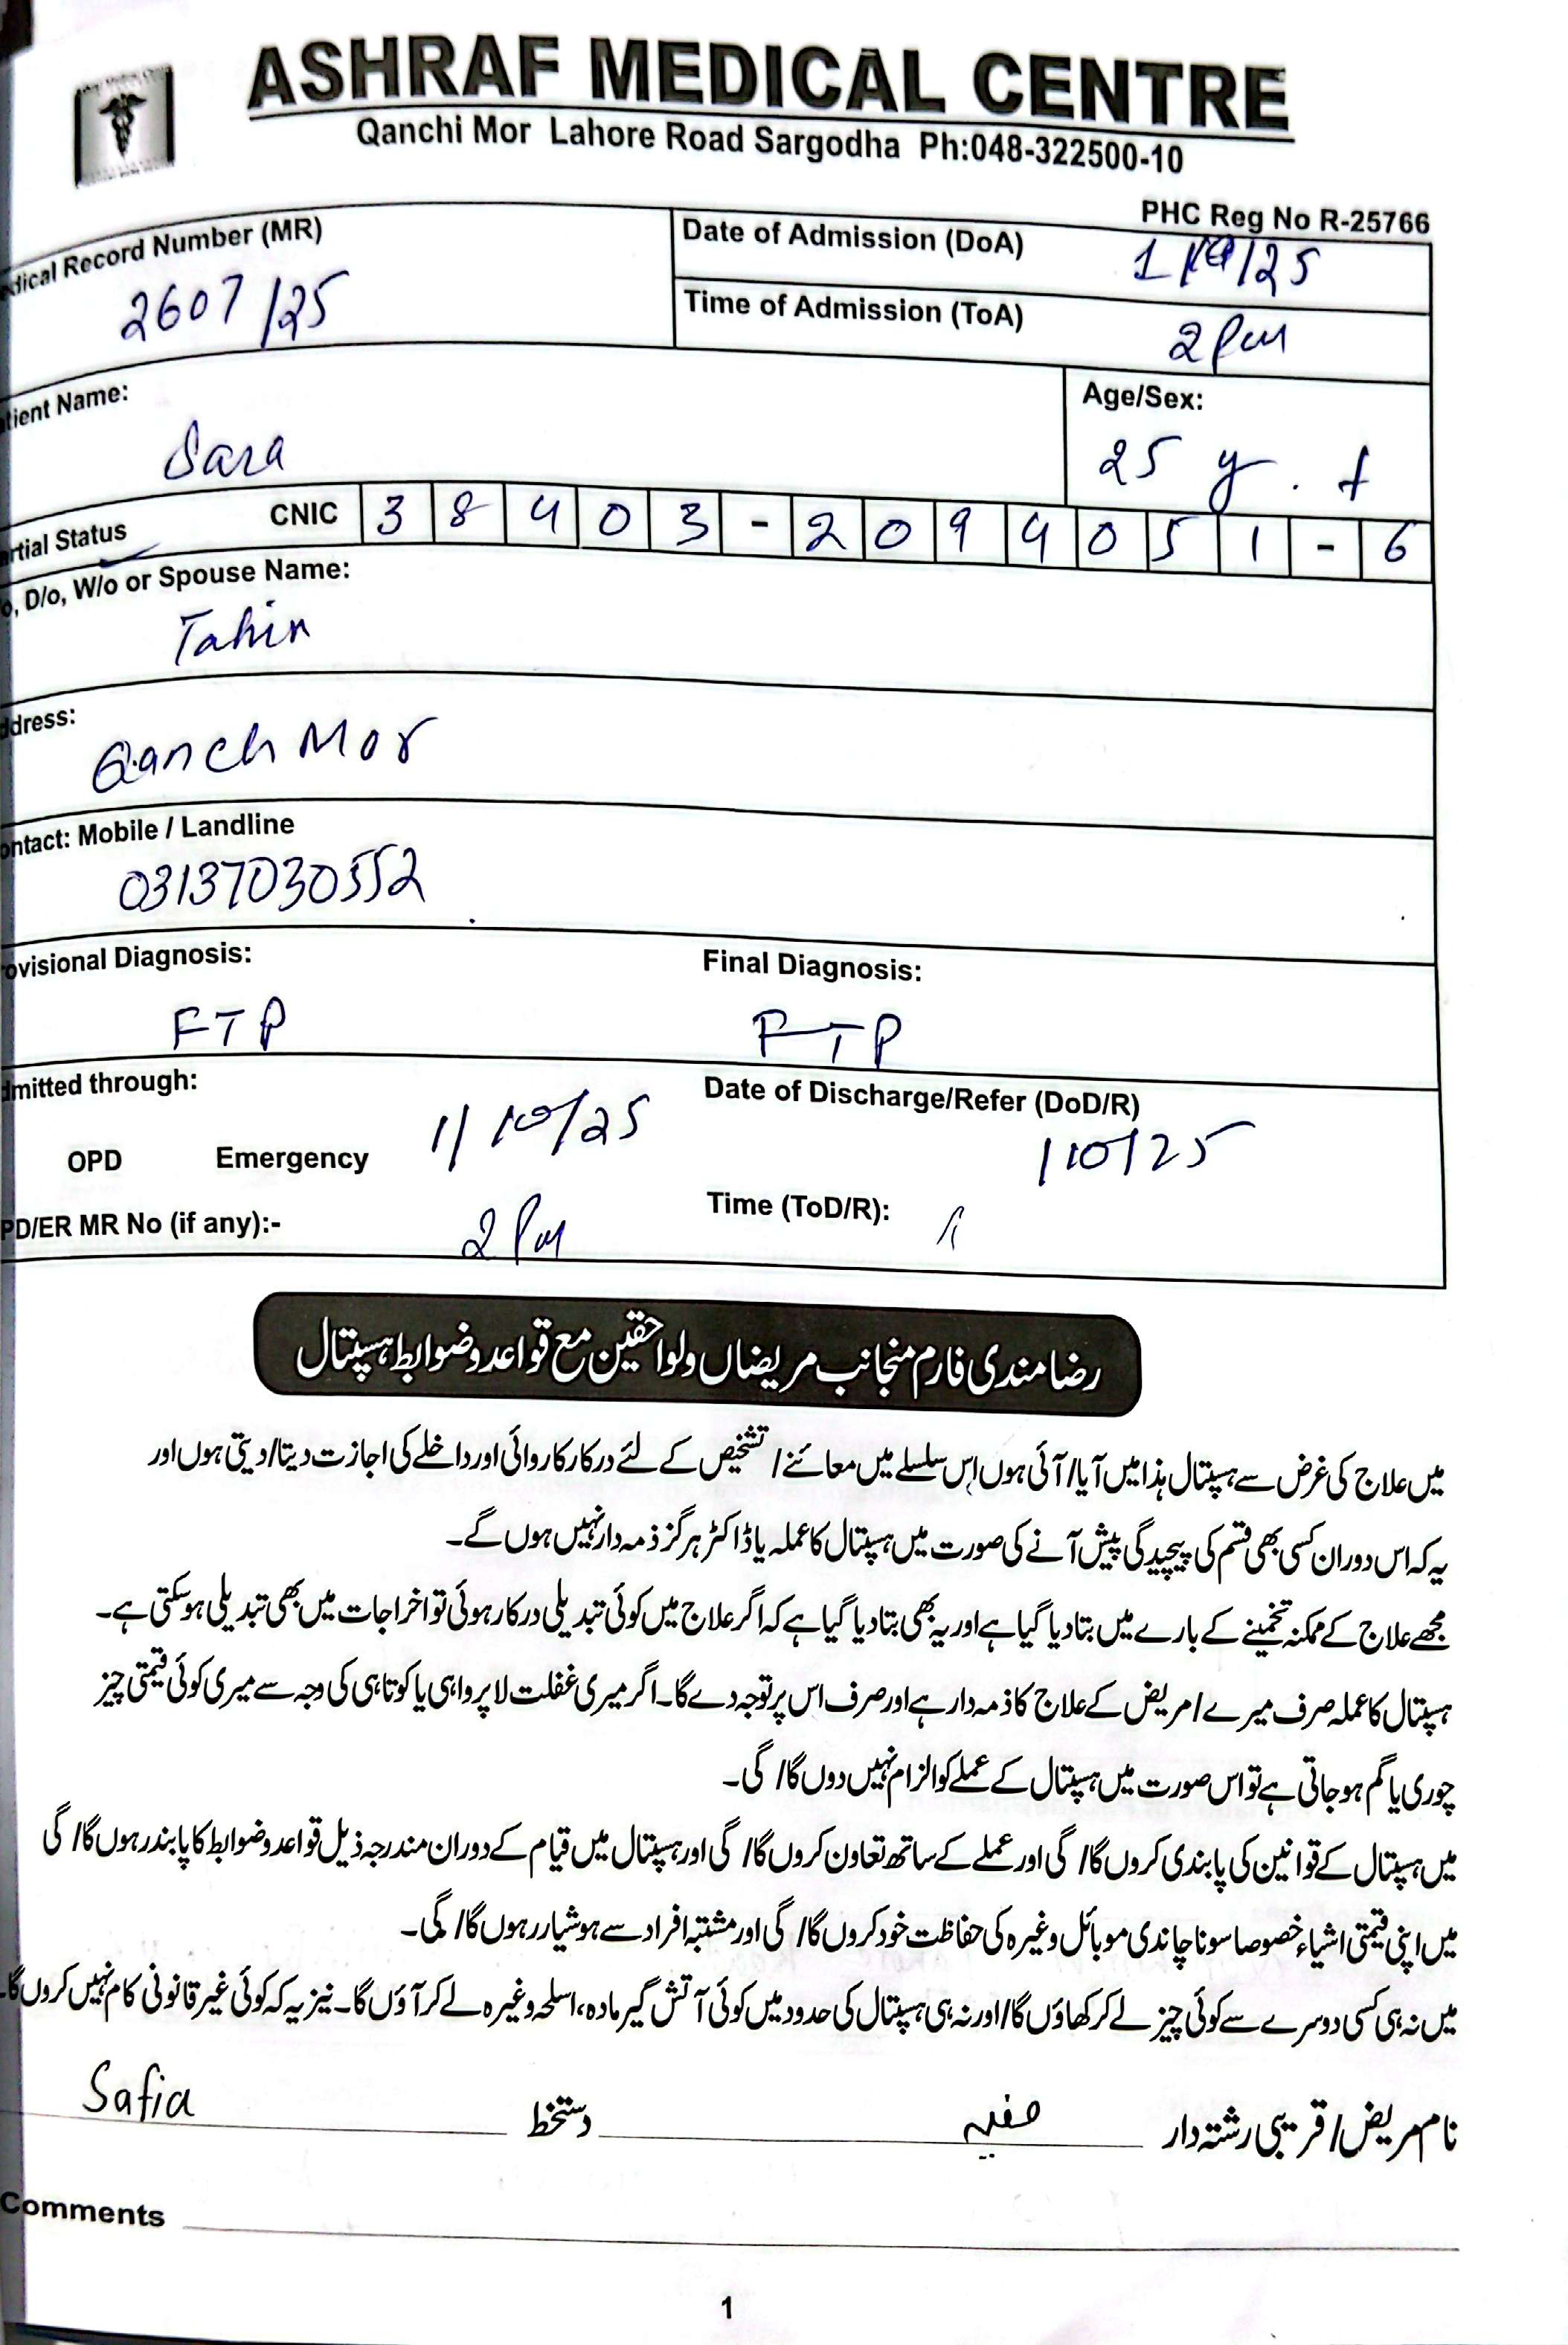 ASHRAF MEDICAL CENTRE
Qanchi Mor Lahore Road Sargodha Ph:048-322500-10
PHC Reg No R-25766
dical Record Number (MR)
2607/25
Date of Admission (DoA)
Time of Admission (ToA)
2 Pm
tient Name:
Sara
Age/Sex:
25 y. f
artial Status
CNIC 38403-2094051-6
o, D/o, W/o or Spouse Name:
Tahir
ddress:
Qanch Mor
ontact: Mobile / Landline
03137030552
ovisional Diagnosis:
FTP
Final Diagnosis:
FTP
dmitted through:
OPD Emergency
1/10/25
Date of Discharge/Refer (DoD/R)
110/25
PD/ER MR No (if any):-
2 Pm
Time (ToD/R):
رضا مندی فارم منجانب مریضاں ولواحقین مع قواعد وضوابط ہسپتال
میں علاج کی غرض سے ہسپتال ہذا میں آیا/آئی ہوں اس سلسلے میں معائنے/تشخیص کے لئے درکار کاروائی اور داخلے کی اجازت دیتا/دیتی ہوں اور
یہ کہ اس دوران کسی بھی قسم کی پیچیدگی پیش آنے کی صورت میں ہسپتال کا عملہ یا ڈاکٹر ہرگز ذمہ دار نہیں ہوں گے۔
مجھے علاج کے ممکنہ تخمینے کے بارے میں بتا دیا گیا ہے اور یہ بھی بتا دیا گیا ہے کہ اگر علاج میں کوئی تبدیلی درکار ہوئی تو اخراجات میں بھی تبدیلی ہوسکتی ہے۔
ہسپتال کا عملہ صرف میرے/مریض کے علاج کا ذمہ دار ہے اور صرف اس پر توجہ دے گا۔ اگر میری غفلت لا پرواہی یا کوتاہی کی وجہ سے میری کوئی قیمتی چیز
چوری یا گم ہو جاتی ہے تو اس صورت میں ہسپتال کے عملے کو الزام نہیں دوں گا/گی۔
میں ہسپتال کے قوانین کی پابندی کروں گا/گی اور عملے کے ساتھ تعاون کروں گا/گی اور ہسپتال میں قیام کے دوران مندرجہ ذیل قواعد وضوابط کا پابند رہوں گا/گی
میں اپنی قیمتی اشیاء خصوصا سونا چاندی موبائل وغیرہ کی حفاظت خود کروں گا/گی اور مشتبہ افراد سے ہوشیار رہوں گا/گی۔
میں نہ ہی کسی دوسرے سے کوئی چیز لے کر کھاؤں گا/اور نہ ہی ہسپتال کی حدود میں کوئی آتش گیر مادہ، اسلحہ وغیرہ لے کر آؤں گا۔ نیز یہ کہ کوئی غیر قانونی کام نہیں کروں گا۔
نام مریض/قریبی رشتہ دار صفیہ دستخط Safia
Comments
1